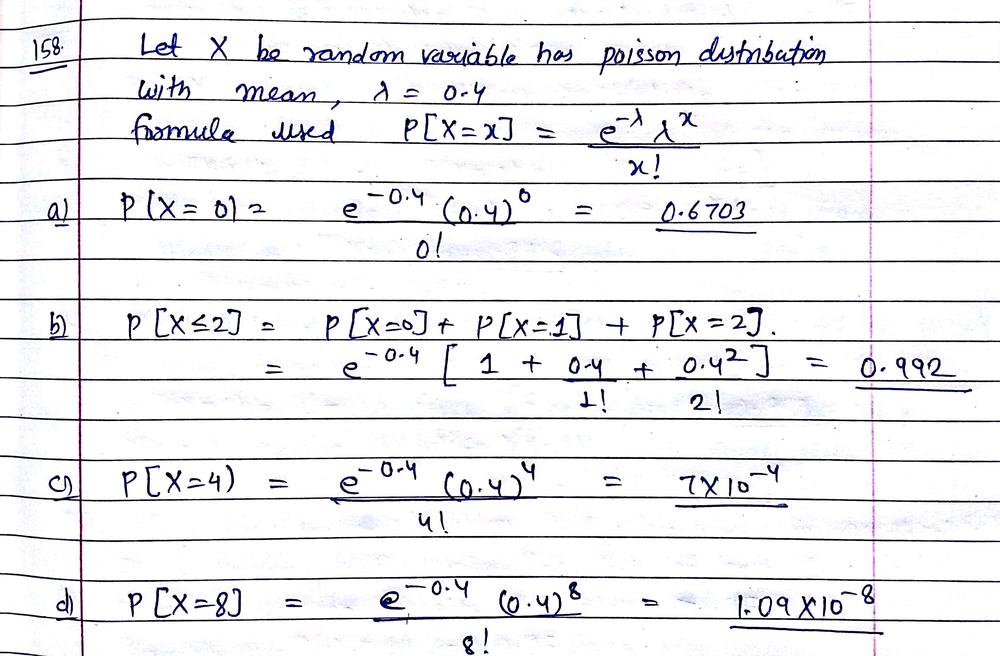 158. Let X be random variable has poisson distribution
with mean, λ = 0.4
formula used P[X=x] = e^-λ λ^x / x!
a) P(X= 0) = e^-0.4 (0.4)^0 / 0! = 0.6703
b) P[X≤2] = P[X=0] + P[X=1] + P[X=2].
= e^-0.4 [ 1 + 0.4/1! + 0.4^2/2! ] = 0.992
c) P[X=4) = e^-0.4 (0.4)^4 / 4! = 7X10^-4
d) P[X=8] = e^-0.4 (0.4)^8 / 8! = 1.09X10^-8